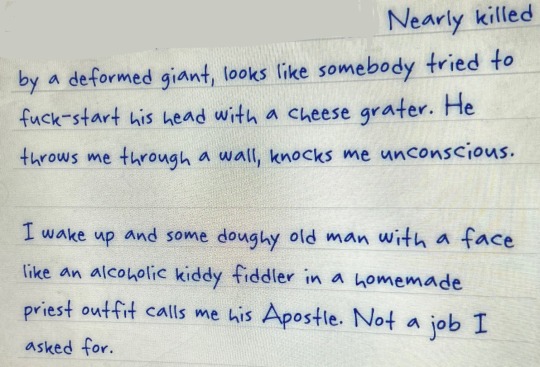 Nearly killed
by a deformed giant, looks like somebody tried to
fuck-start his head with a cheese grater. He
throws me through a wall, knocks me unconscious.
I wake up and some doughy old man with a face
like an alcoholic kiddy fiddler in a homemade
priest outfit calls me his Apostle. Not a job I
asked for.